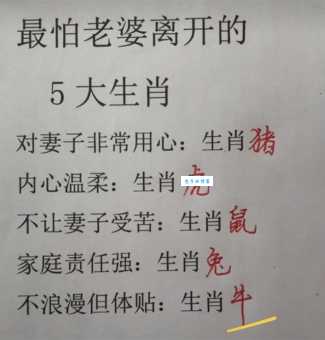 最怕老婆离开的
5大生肖
对妻子非常用心：生肖猪
内心温柔：生肖虎
不让妻子受苦：生肖鼠
家庭责任强：生肖兔
不浪漫但体贴：生肖牛